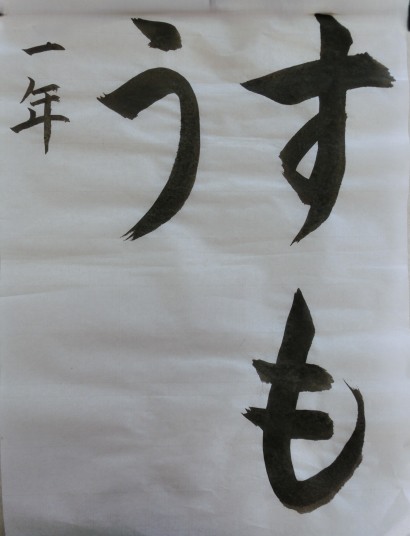 すも
う
一年